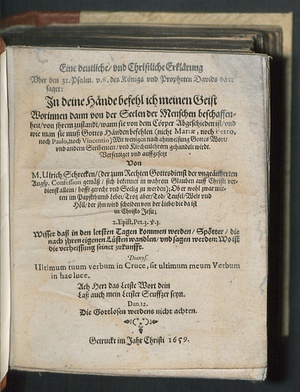 Eine deutliche / vnd Christliche Erklärung
Vber den 31. Psalm. v.6. des Königs vnd Propheten Davids da er
saget:
In deine Hände befehl ich meinen Geist
Worinnen dann von der Seelen der Menschen beschaffen-
heit / von jhrem zustand / wann sie von dem Cörper Abgescheiden ist / vnd
wie man sie muß Gottes Händen befehlen (nicht Mariæ, noch Petro,
noch Paulo, noch Vincentio) Mit wenigen nach anweisung Gottes Wort /
vnd andern Scribenten / vnd Kirchenlehrern gehandelt wirdt.
Verfertiget vnd auffgesetzt
Von
M. Ulrich Schrecken / der zum Rechten Gottesdienst der ungeänderten
Augsp. Confession gemäß / sich bekennet in wahren Glauben auff Christi ver-
dienst allein / hofft gerecht vnd Seelig zu werden; Ob er wohl zwar mit-
ten im Papsthumb lebe / Trotz aber / Tod / Teufel / Welt vnd
Höll / der jhn wird scheiden von der Liebe die da ist
in Christo Jesu;
2. Epist. Pet. 3. v. 3.
Wisset daß in den letzten Tagen kommen werden / Spötter / die
nach jhren eigenen Lüsten wandlen / vnd sagen werden: Wo ist
die verheissung seiner zukunfft.
Ultimum tuum verbum in Cruce, sit ultimum meum Verbum
in hac luce.
Ach Herr das Letste Wort dein
Laß auch mein Letster Seuffzer seyn.
Dan. 12.
Die Gottlosen werdens nicht achten.
Getruckt im Jahr Christi 1659.